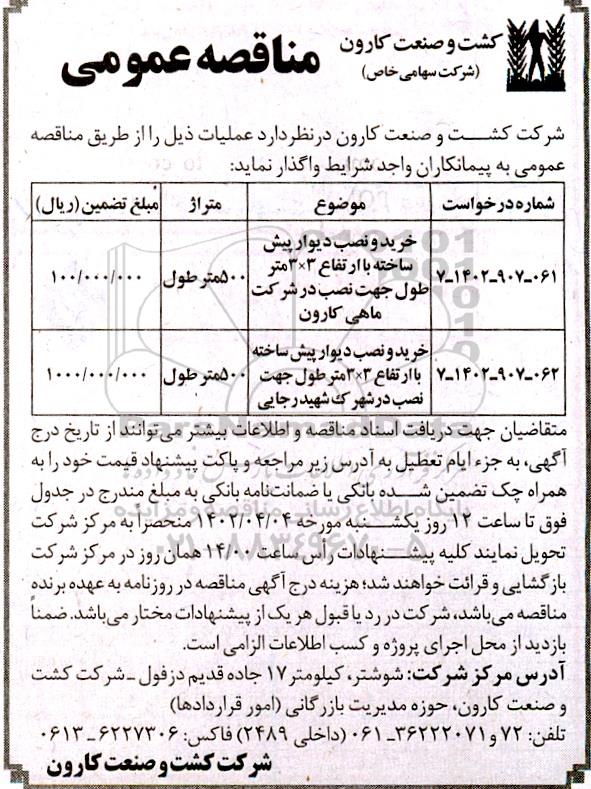 کشت و صنعت کارون
(شرکت سهامی خاص)
مناقصه عمومی
شرکت کشت و صنعت کارون درنظردارد عملیات ذیل را از طریق مناقصه
عمومی به پیمانکاران واجد شرایط واگذار نماید:
شماره درخواست موضوع متراژ مبلغ تضمین (ریال)
۷-۱۴۰۲-۹۰۷-۰۶۱ خرید و نصب دیوار پیش ساخته با ارتفاع ۳×۳متر طول جهت نصب در شرکت ماهی کارون ۵۰۰متر طول ۱۰۰/۰۰۰/۰۰۰
۷-۱۴۰۲-۹۰۷-۰۶۲ خرید و نصب دیوار پیش ساخته با ارتفاع ۳×۳متر طول جهت نصب در شهرک شهید رجایی ۵۰۰متر طول ۱۰۰۰/۰۰۰/۰۰۰
متقاضیان جهت دریافت اسناد مناقصه و اطلاعات بیشتر می‌توانند از تاریخ درج
آگهی، به جزء ایام تعطیل به آدرس زیر مراجعه و پاکت پیشنهاد قیمت خود را به
همراه چک تضمین شده بانکی یا ضمانت‌نامه بانکی به مبلغ مندرج در جدول
فوق تا ساعت ۱۲ روز یکشنبه مورخه ۱۴۰۲/۰۴/۰۴ منحصراً به مرکز شرکت
تحویل نمایند کلیه پیشنهادات رأس ساعت ۱۴/۰۰ همان روز در مرکز شرکت
بازگشایی و قرائت خواهند شد؛ هزینه درج آگهی مناقصه در روزنامه به عهده برنده
مناقصه می‌باشد، شرکت در رد یا قبول هر یک از پیشنهادات مختار می‌باشد. ضمناً
بازدید از محل اجرای پروژه و کسب اطلاعات الزامی است.
آدرس مرکز شرکت: شوشتر، کیلومتر ۱۷ جاده قدیم دزفول - شرکت کشت
و صنعت کارون، حوزه مدیریت بازرگانی (امور قراردادها)
تلفن: ۷۲ و ۳۶۲۲۲۰۷۱-۰۶۱ (داخلی ۲۴۸۹) فاکس: ۶۲۲۷۳۰۶ - ۰۶۱۳
شرکت کشت و صنعت کارون
ParsNamadData
پایگاه اطلاع رسانی مناقصه و مزایده
۰۲۱-۸۸۳۴۹۶۷۰-۵